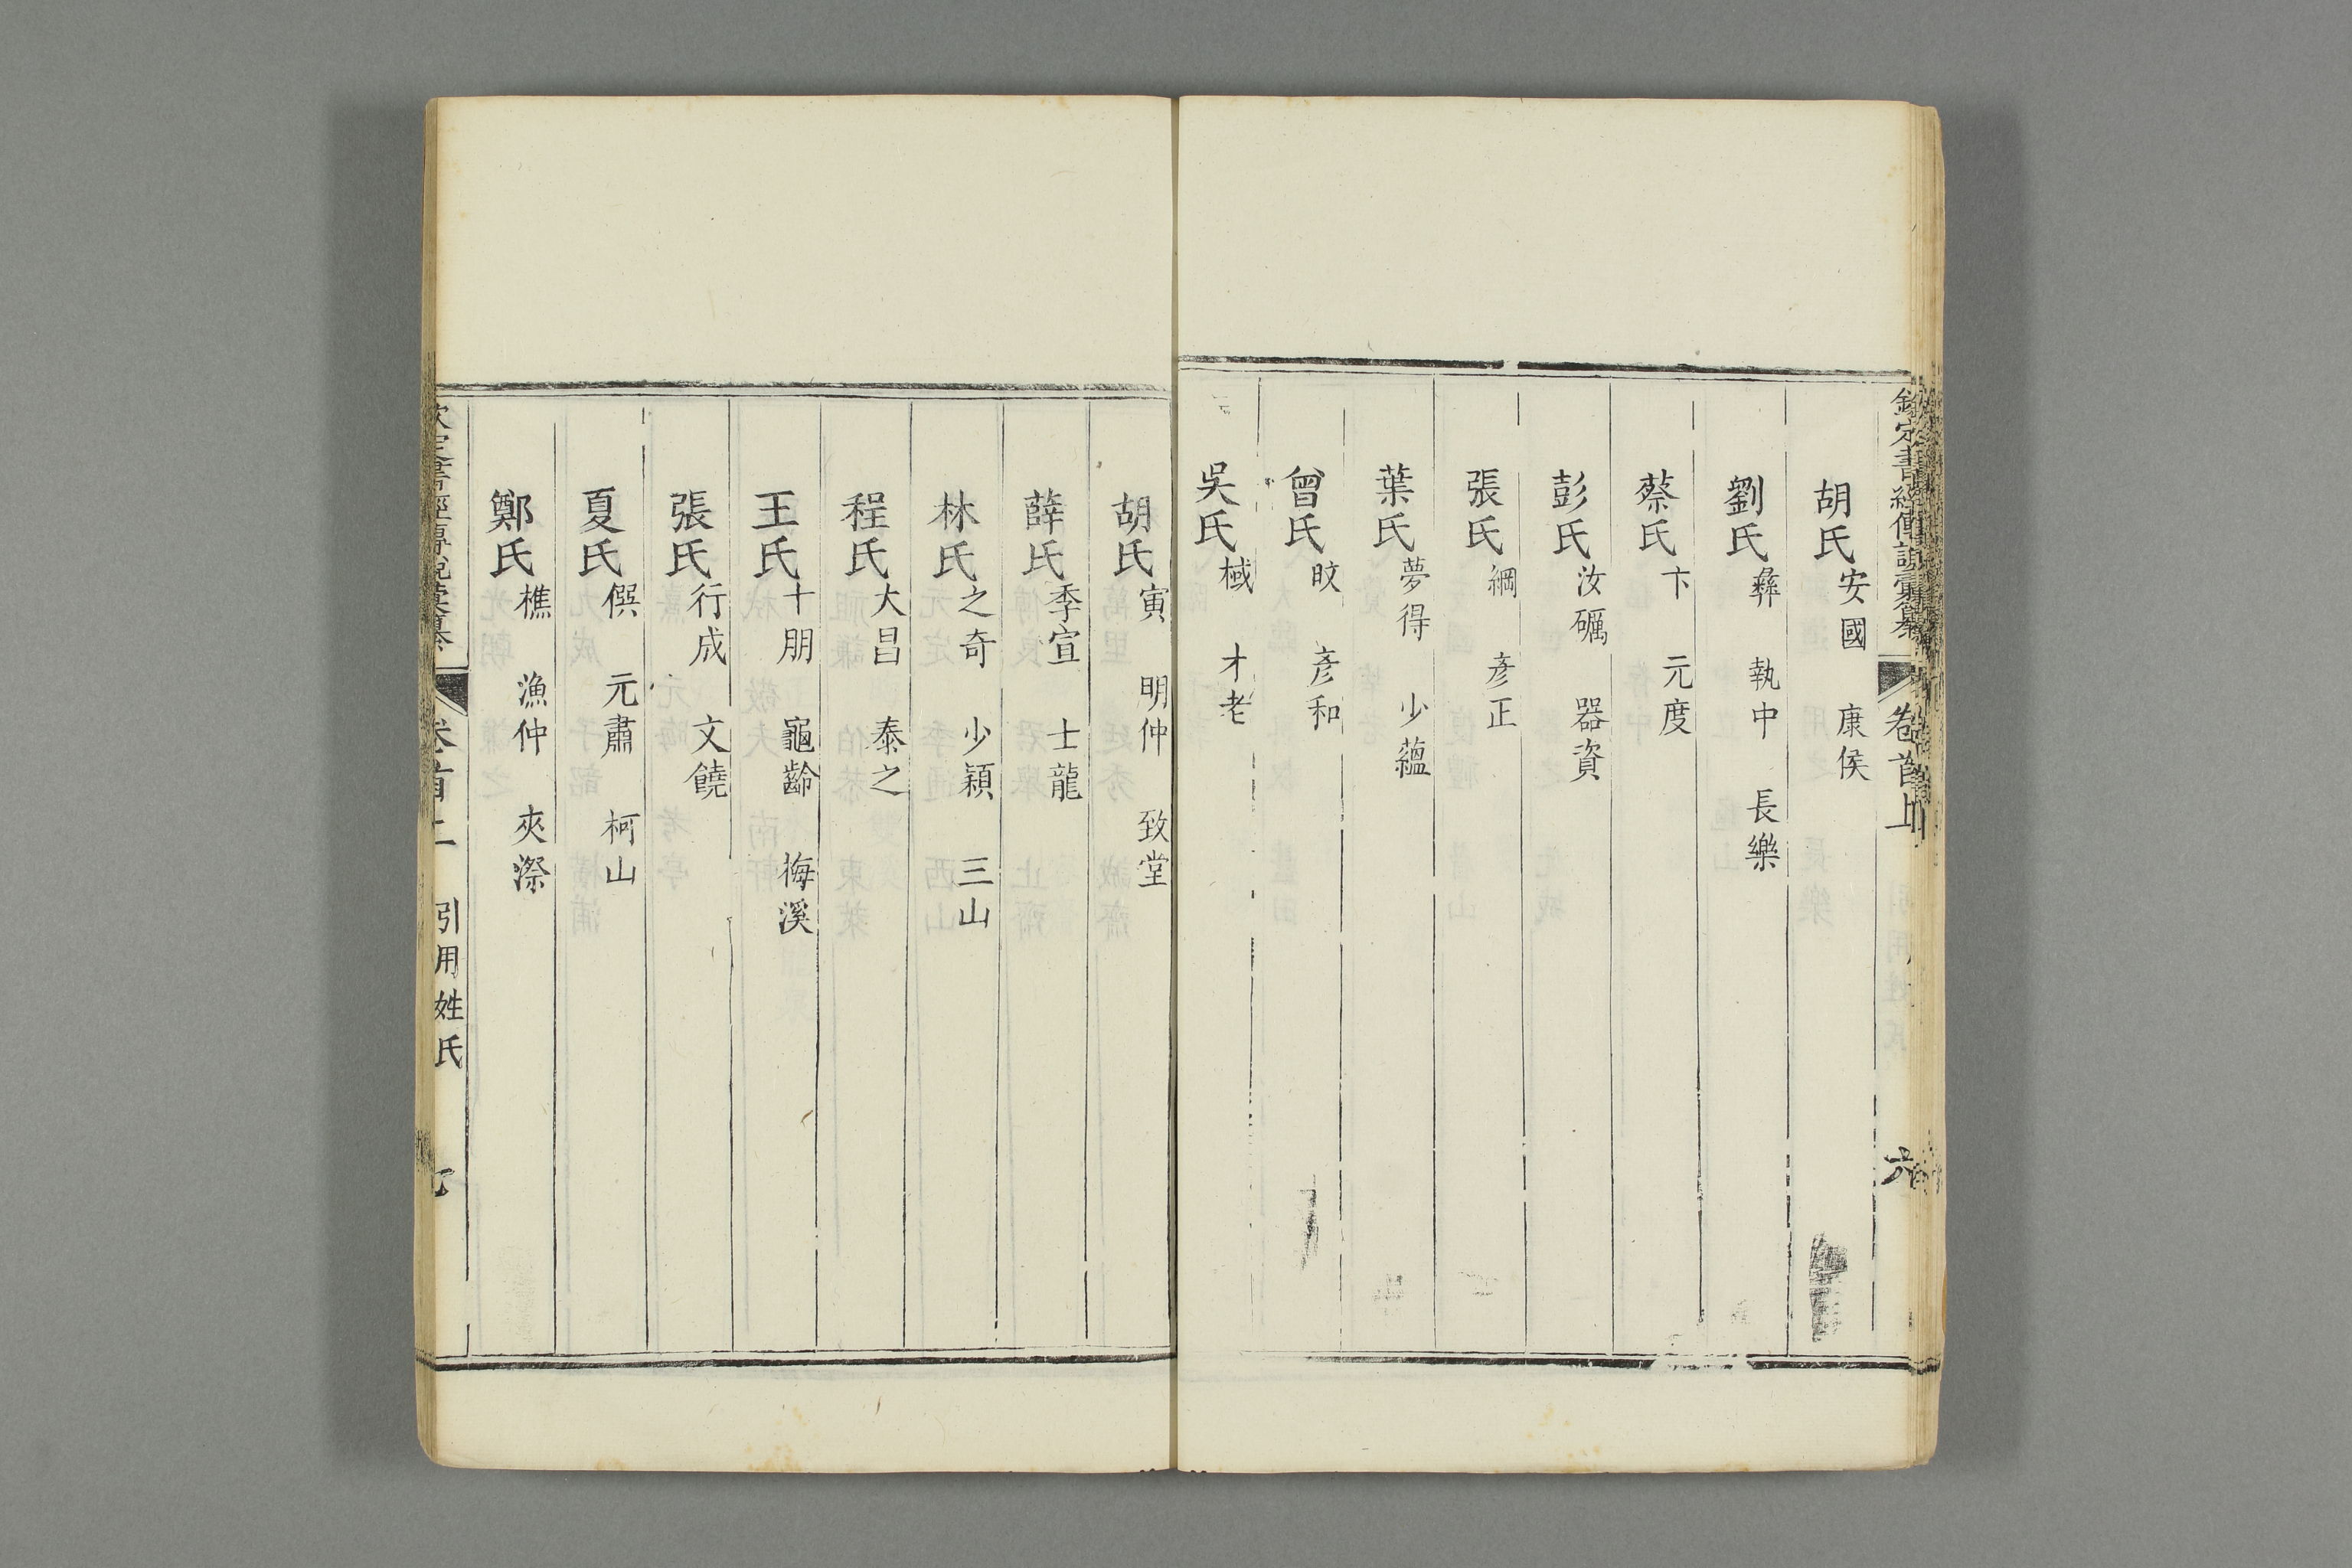 欽定書經傳說彙纂 卷首上 六
胡氏 安國 康侯
劉氏 彝 執中 長樂
蔡氏 卞 元度
彭氏 汝礪 器資
張氏 綱 彥正
葉氏 夢得 少蘊
曾氏 旼 彥和
吳氏 棫 才老
胡氏 寅 明仲 致堂
薛氏 季宣 士龍
林氏 之奇 少穎 三山
程氏 大昌 泰之
王氏 十朋 龜齡 梅溪
張氏 行成 文饒
夏氏 僎 元肅 柯山
鄭氏 樵 漁仲 夾漈
欽定書經傳說彙纂 卷首上 引用姓氏 七